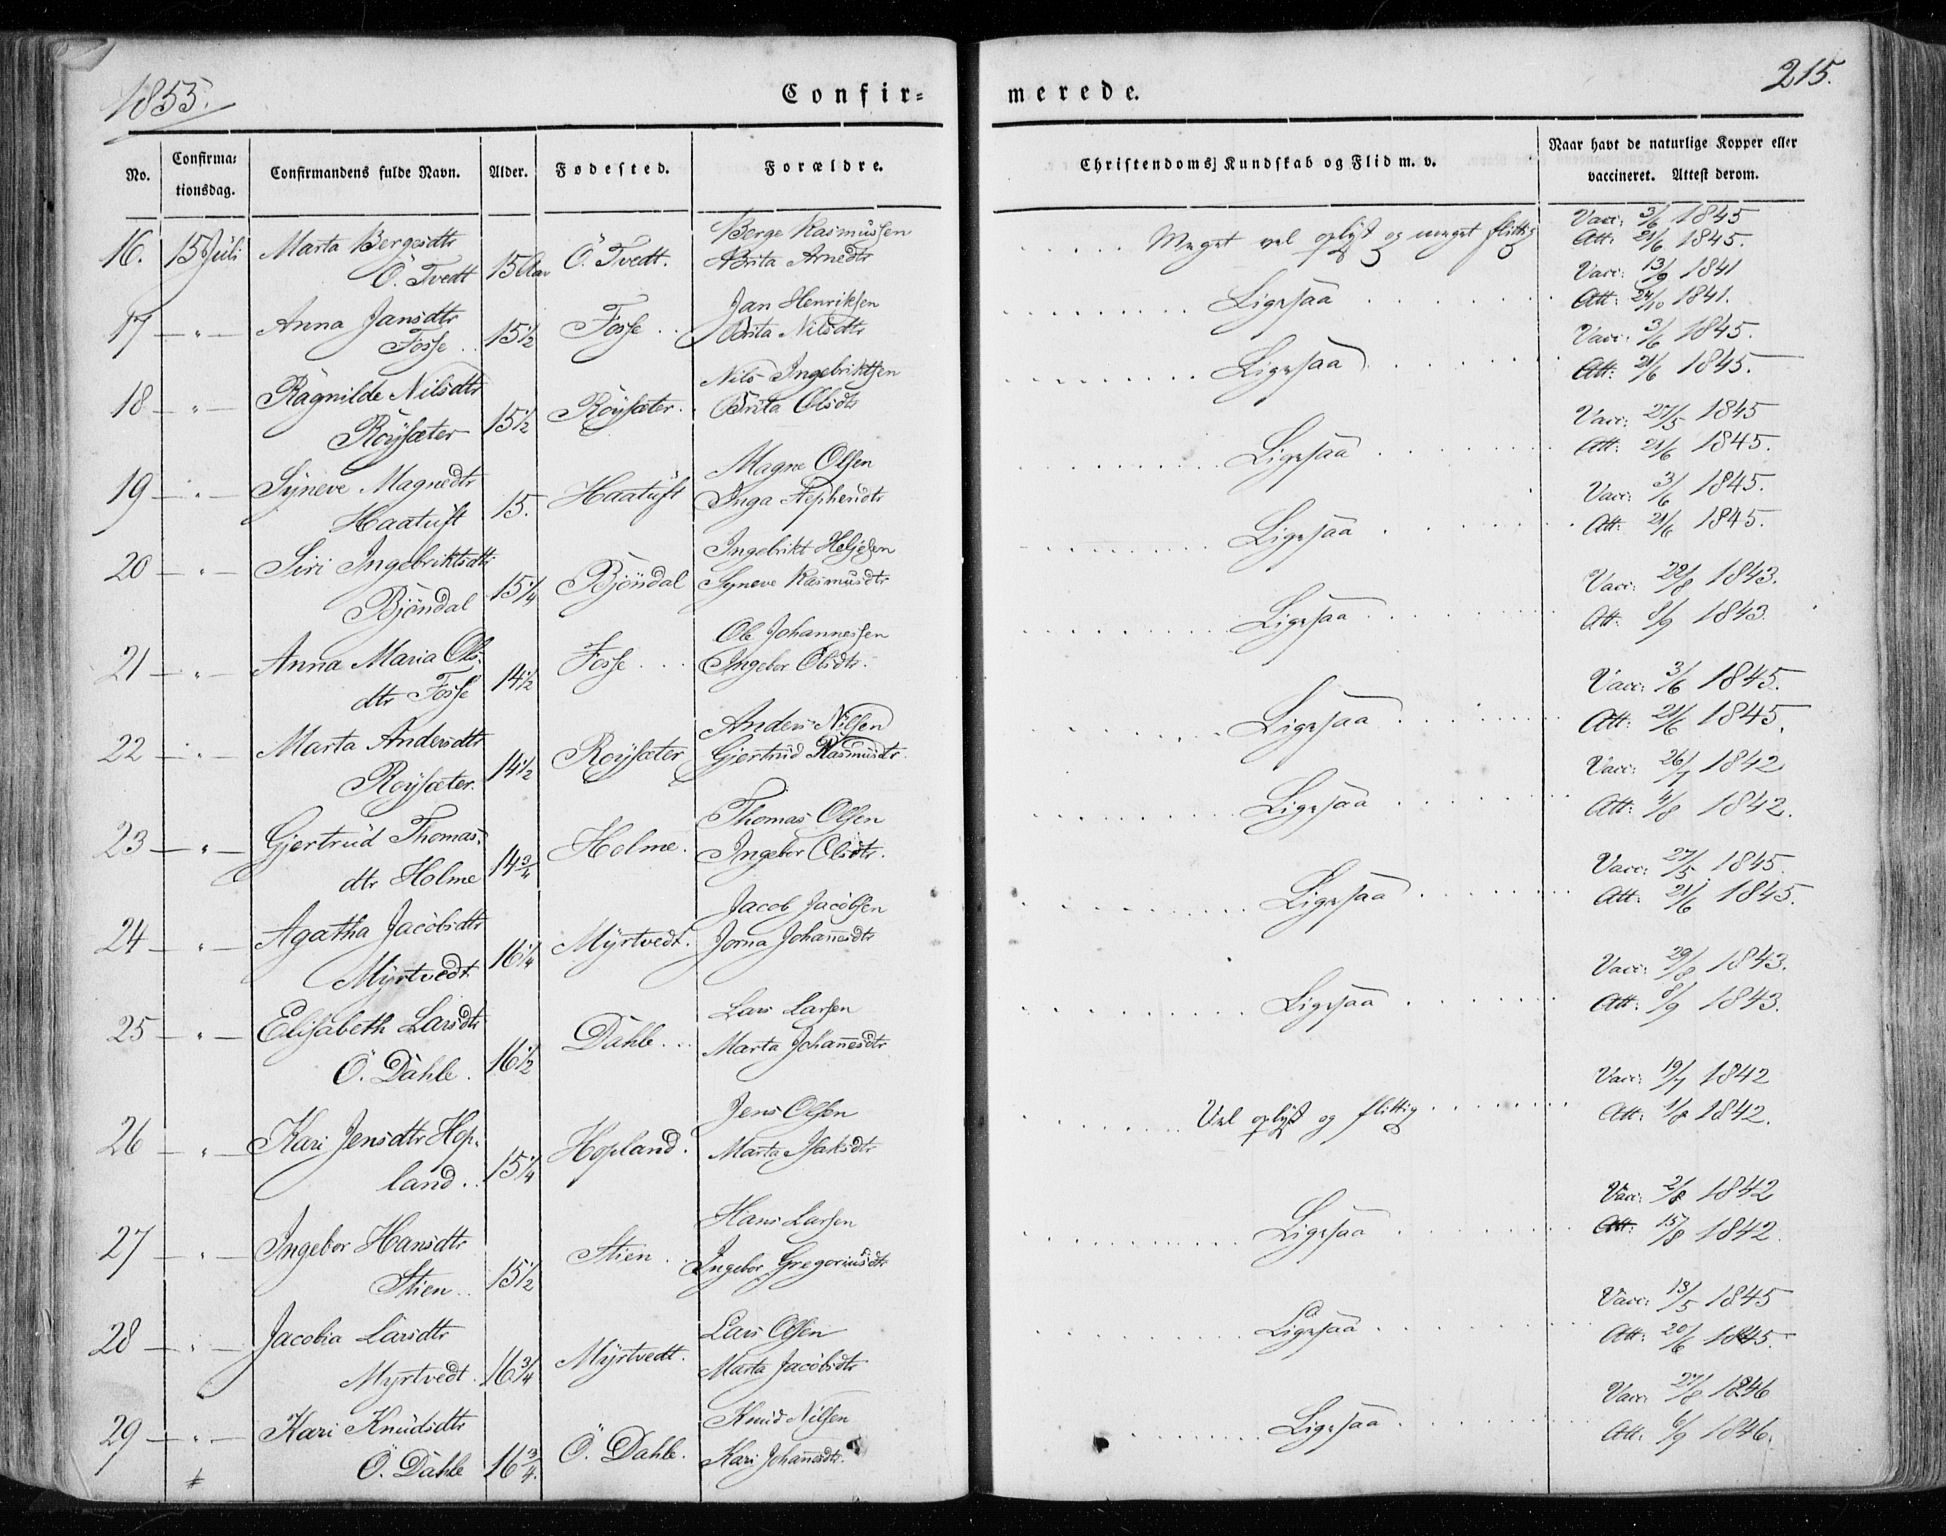 1855.
Confir-
merede.
215.
No.
Confirma-
tionsdag.
Confirmandens fulde Navn.
Alder.
Fødested.
Forældre.
Christendoms Kundskab og Flid m. v.
Naar havt de naturlige Kopper eller
vaccineret. Attest derom.
16. 15 Juli Marta Bergesdtr
Ö. Tvedt 15 Aar Ö. Tvedt.
Berge Rasmussen
Brita Arnedtr
Meget vel oplyst og meget flittig
Vacc: 3/6 1845
Att: 21/6 1845.
17 — " — Anna Jansdtr
Fosse 15 1/2 Fosse
Jan Henriksen
Brita Nilsdtr
Ligesaa
Vacc: 13/9 1841
Att: 24/10 1841.
18 — " — Ragnilde Nilsdtr
Röysæter 15 1/2 Röysæter.
Nils Ingebriktsen
Brita Olsdtr
Ligesaa
Vacc: 3/6 1845.
Att: 21/6 1845.
19 — " — Syneve Magnedtr
Haatuft 15. Haatuft
Magne Olsen
Inga
Ligesaa
Vacc: 27/5 1845
Att: 21/6 1845.
20 — " — Siri Ingebriktsdtr
Bjöndal 15 1/4 Bjöndal
Ingebrikt Heljesen
Syneve Rasmusdtr
Ligesaa
Vacc: 3/6 1845.
Att: 21/6 1845.
21 — " — Anna Maria Ols-
dtr Fosse 14 1/2 Fosse
Ole Johannessen
Ingebor Olsdtr.
Ligesaa
Vacc: 29/8 1843.
Att: 8/9 1843.
22 — " — Marta Andersdtr
Röysæter. 14 1/2 Röysæter
Anders Nilsen
Gjertrud Rasmusdtr.
Ligesaa
Vacc: 3/6 1845.
Att: 21/6 1845.
23 — " — Gjertrud Thomas-
dtr Holme 14 3/4 Holme.
Thomas Olsen
Ingebor Olsdtr.
Ligesaa
Vacc: 26/7 1842
Att: 4/8 1842.
24 — " — Agatha Jacobsdtr
Myrtvedt 16 1/4 Myrtvedt.
Jacob Jacobsen
Jorna Johannesdtr
Ligesaa
Vacc: 27/5 1845.
Att: 21/6 1845.
25 — " — Elisabeth Larsdtr
Ö. Dahle. 16 1/2 Dahle
Lars Larsen
Marta Johannesdtr
Ligesaa
Vacc: 29/8 1843.
Att: 8/9 1843.
26 — " — Kari Jensdtr Hop-
land. 15 1/4 Hopland.
Jens Olsen
Marta Isaksdtr
Vel oplyst og flittig
Vacc: 19/7 1842
Att: 1/8 1842.
27 — " — Ingebor Hansdtr
Stien 15 1/2 Stien
Hans Larsen
Ingebor Gregoriusdtr
Ligesaa
Vacc: 2/8 1842
Att: 15/8 1842.
28 — " — Jacobia Larsdtr
Myrtvedt 16 3/4 Myrtvedt.
Lars Olsen
Marta Jacobsdtr
Ligesaa
Vacc: 13/5 1845
Att: 20/6 1845.
29 — " — Kari Knudsdtr
Ö. Dahle 16 3/4. Ö. Dahle.
Knud Nilsen
Kari Johannesdtr.
Ligesaa
Vacc: 27/8 1846
Att: 6/9 1846.